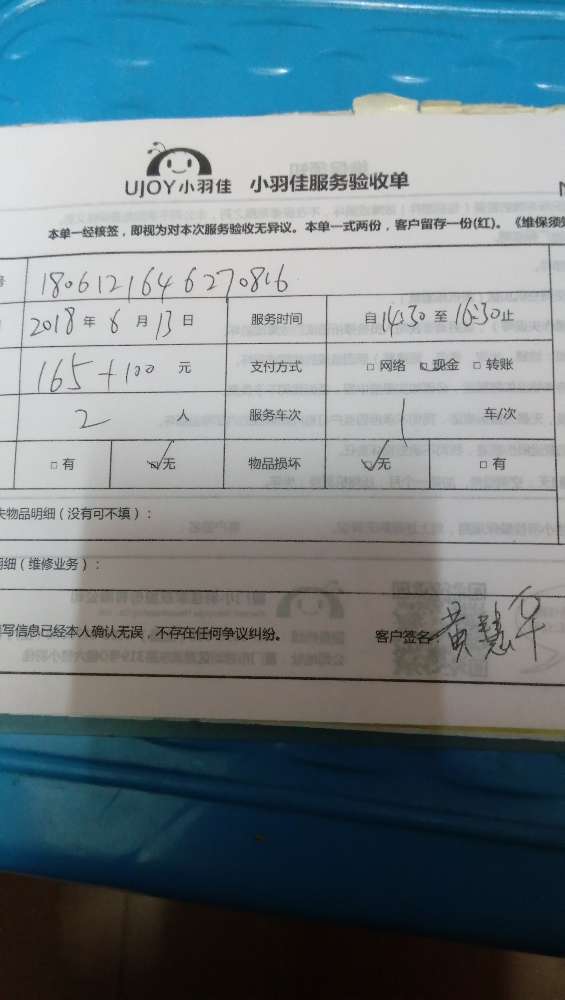 UJOY小羽佳 小羽佳服务验收单
本单一经核签，即视为对本次服务验收无异议。本单一式两份，客户留存一份(红)。《维保须
号 1806121646270816
2018 年 6 月 13 日 服务时间 自 14:30 至 16:30 止
165+100 元 支付方式 □ 网络 □ 现金 □ 转账
2 人 服务车次 1 车/次
□ 有 □ 无 物品损坏 □ 无 □ 有
失物品明细（没有可不填）：
明细（维修业务）：
填写信息已经本人确认无误，不存在任何争议纠纷。 客户签名 黄慧军